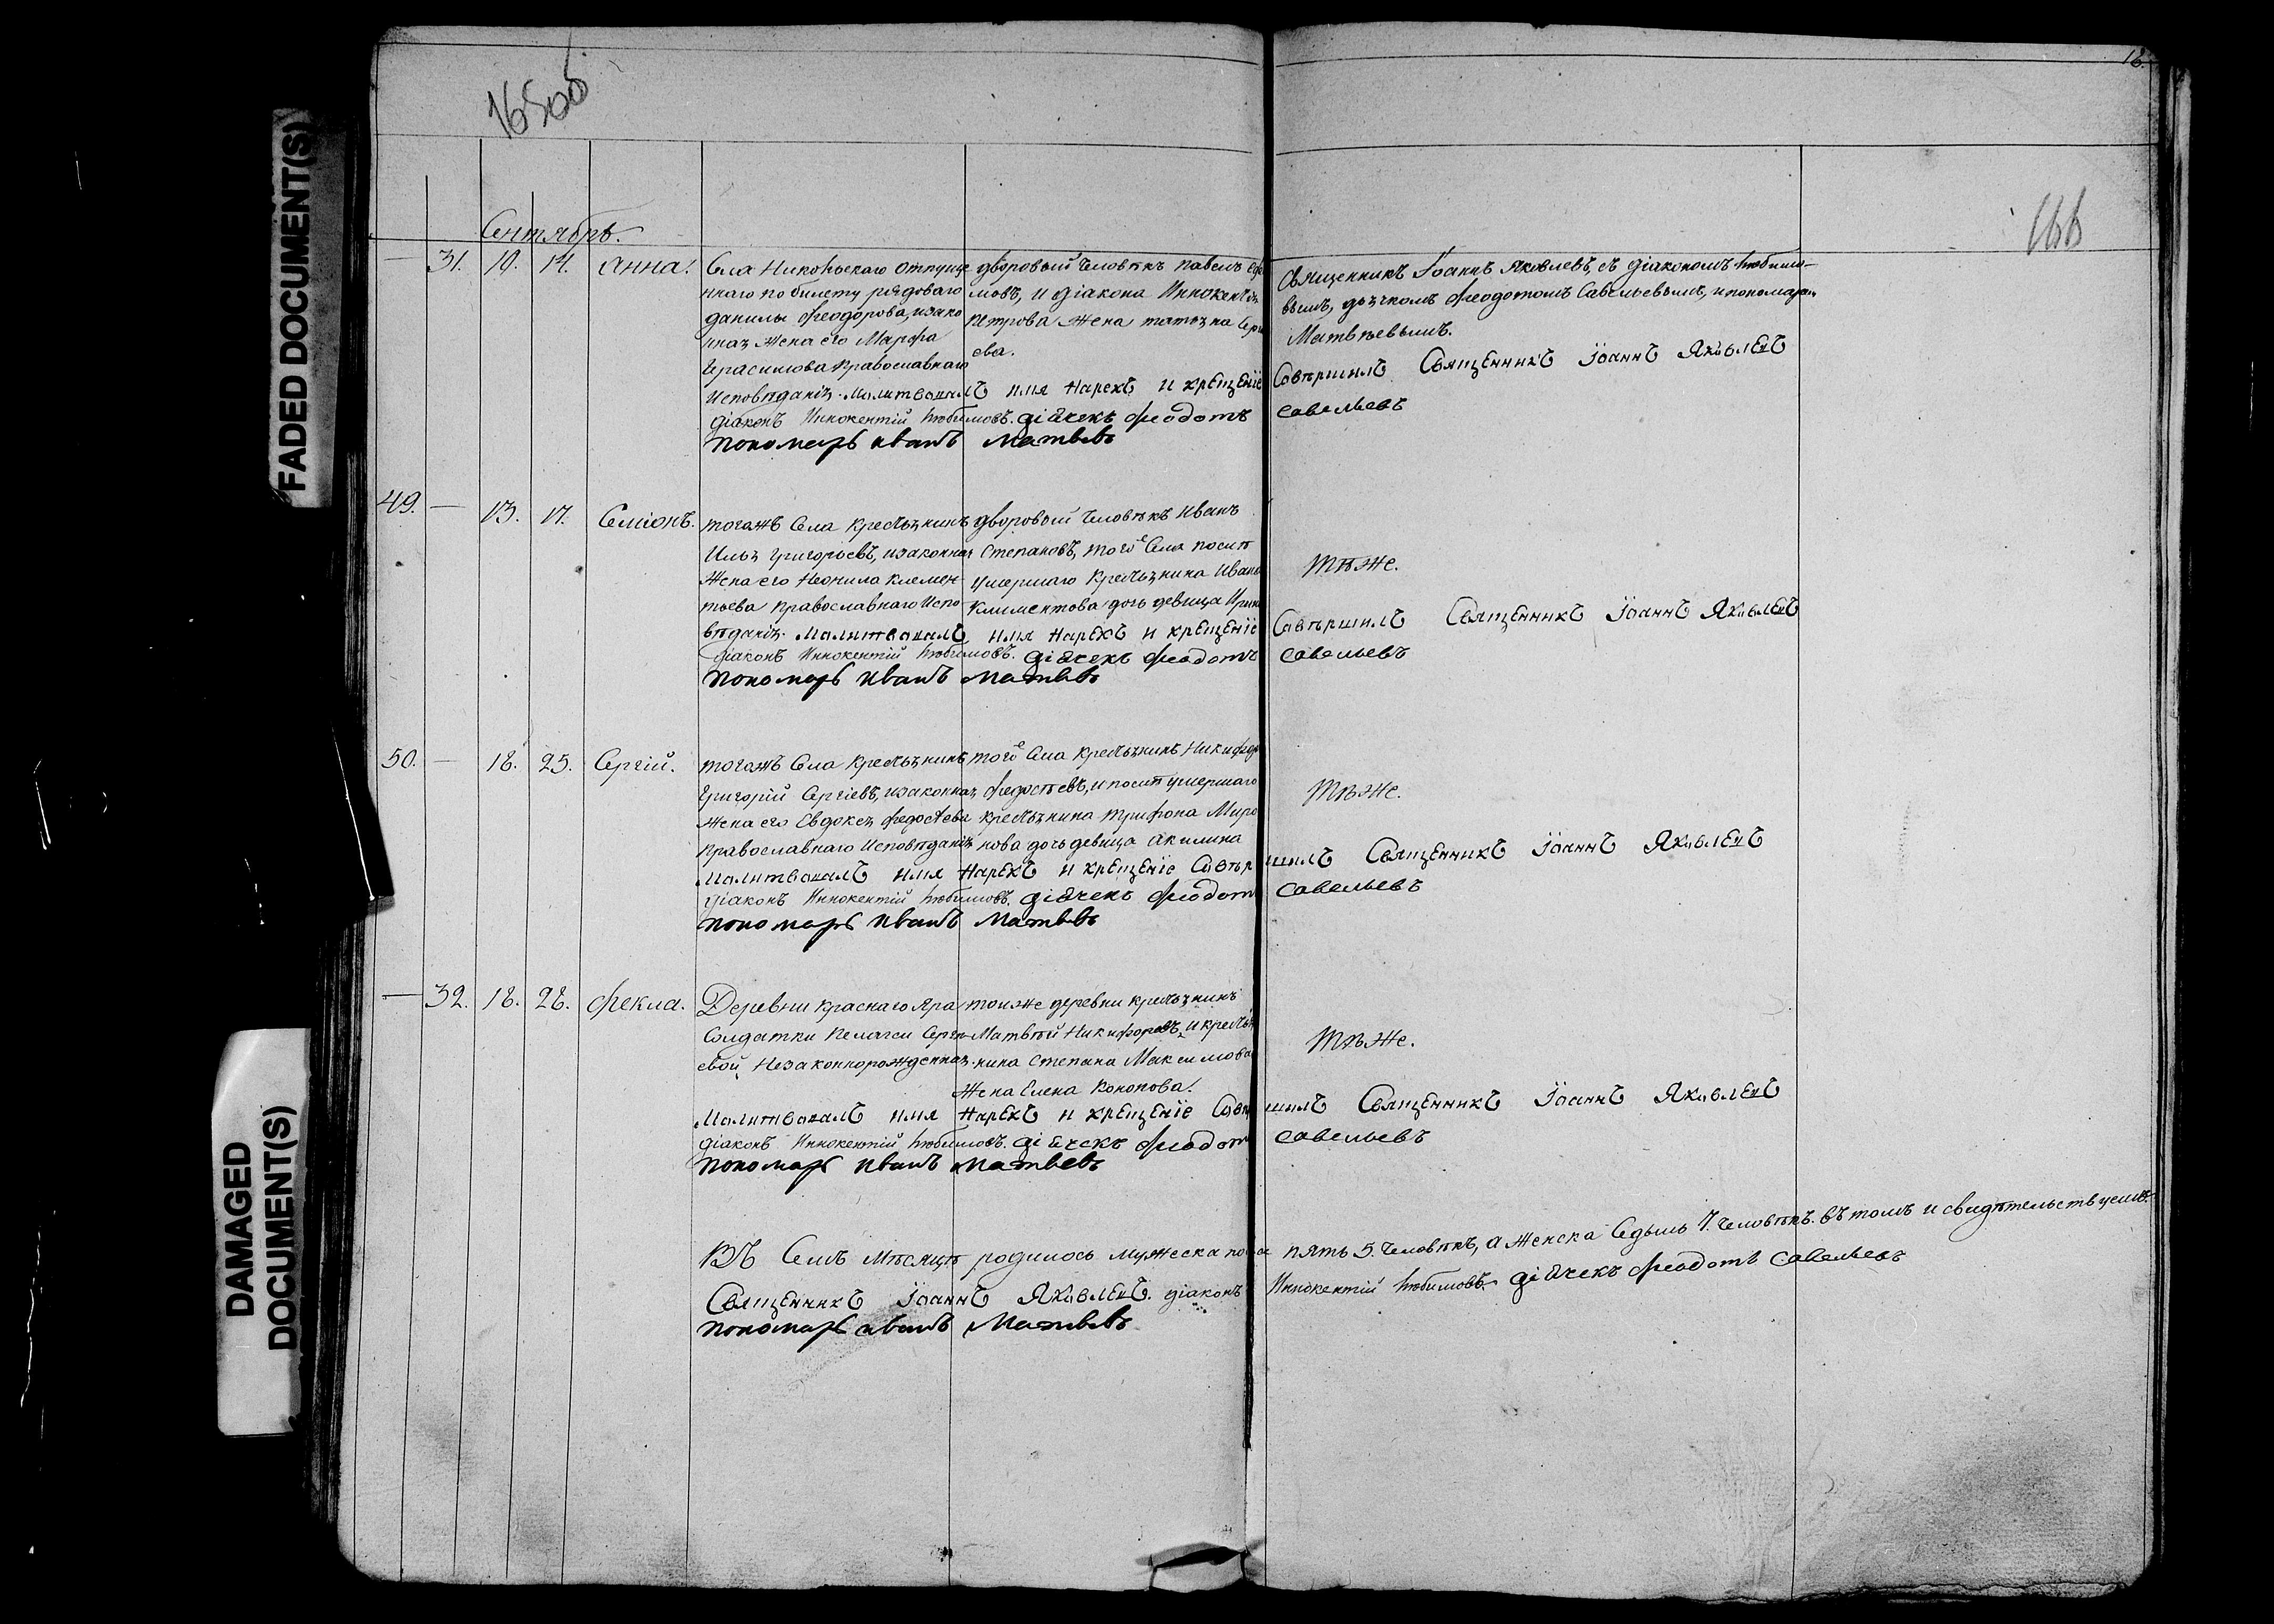 18.
16506
166
FADED DOCUMENT(S)
DAMAGED
DOCUMENT(S)
Сентябрь.
— 31. 10. 14. Анна.
Села Никольскаго отпуще
ннаго по билету рядоваго
Данилы Феодорова, изако
нная жена его Марфа
Герасимова Православнаго
Исповѣданія.
дворовый человѣкъ Павелъ Ефи
мовъ, и діакона Иннокентія
Петрова жена Татьяна Серг
ева.
Священникъ Іоаннъ Яковлевъ, съ діакономъ Любимо-
вымъ, дьячкомъ Феодотомъ Савельевымъ, и пономаремъ
Матвѣевымъ.
Молитвовалъ имя нарекъ и крещеніе Совершилъ Священникъ Іоаннъ Яковлевъ
діаконъ Иннокентій Любимовъ. діячекъ Феодотъ Савельевъ
Пономарь Иванъ Матвевъ
49. — 13. 17. Семіонъ.
тогожъ Села крестьянинъ
Илья Григорьевъ, изаконная
жена его Неонила Клемен-
тьева Православнаго Испо-
вѣданія.
дворовый человѣкъ Иванъ
Степановъ, того Села послѣ
умершаго крестьянина Ивана
Климентова дочь девица Ирина
Тѣ же.
Молитвовалъ имя нарекъ и крещеніе Совершилъ Священникъ Іоаннъ Яковлевъ
діаконъ Иннокентій Любимовъ. діячекъ Феодотъ Савельевъ
Пономарь Иванъ Матвевъ
50. — 18. 25. Сергій.
тогожъ Села крестьянинъ
Григорій Сергіевъ, изаконная
жена его Евдокея Федосѣева
Православнаго Исповѣданія
того Села крестьянинъ Никифор
Федосѣевъ, и послѣ умершаго
крестьянина Трифона Миро
нова дочь девица Акилина
Тѣ же.
Молитвовалъ имя нарекъ и крещеніе Совершилъ Священникъ Іоаннъ Яковлевъ
діаконъ Иннокентій Любимовъ. діячекъ Феодотъ Савельевъ
Пономарь Иванъ Матвевъ
— 32. 18. 28. Фекла.
Деревни Краснаго Яра
Солдатки Пелагеи Сергѣ-
евой, Незаконнорожденная.
тойже деревни крестьянинъ
Матвѣй Никифоровъ, и крестья
нина Степана Максимова
жена Елена Кононова.
Тѣ же.
Молитвовалъ имя нарекъ и крещеніе Совершилъ Священникъ Іоаннъ Яковлевъ
діаконъ Иннокентій Любимовъ. діячекъ Феодотъ Савельевъ
Пономарь Иванъ Матвевъ
Въ Семъ Мѣсяцѣ родилось мужеска пола пять 5. человѣкъ, а женска Седьмь 7. человѣкъ. въ томъ и свидѣтельствуемъ.
Священникъ Іоаннъ Яковлевъ. діаконъ Иннокентій Любимовъ. діячекъ Феодотъ Савельевъ
Пономарь Иванъ Матвевъ